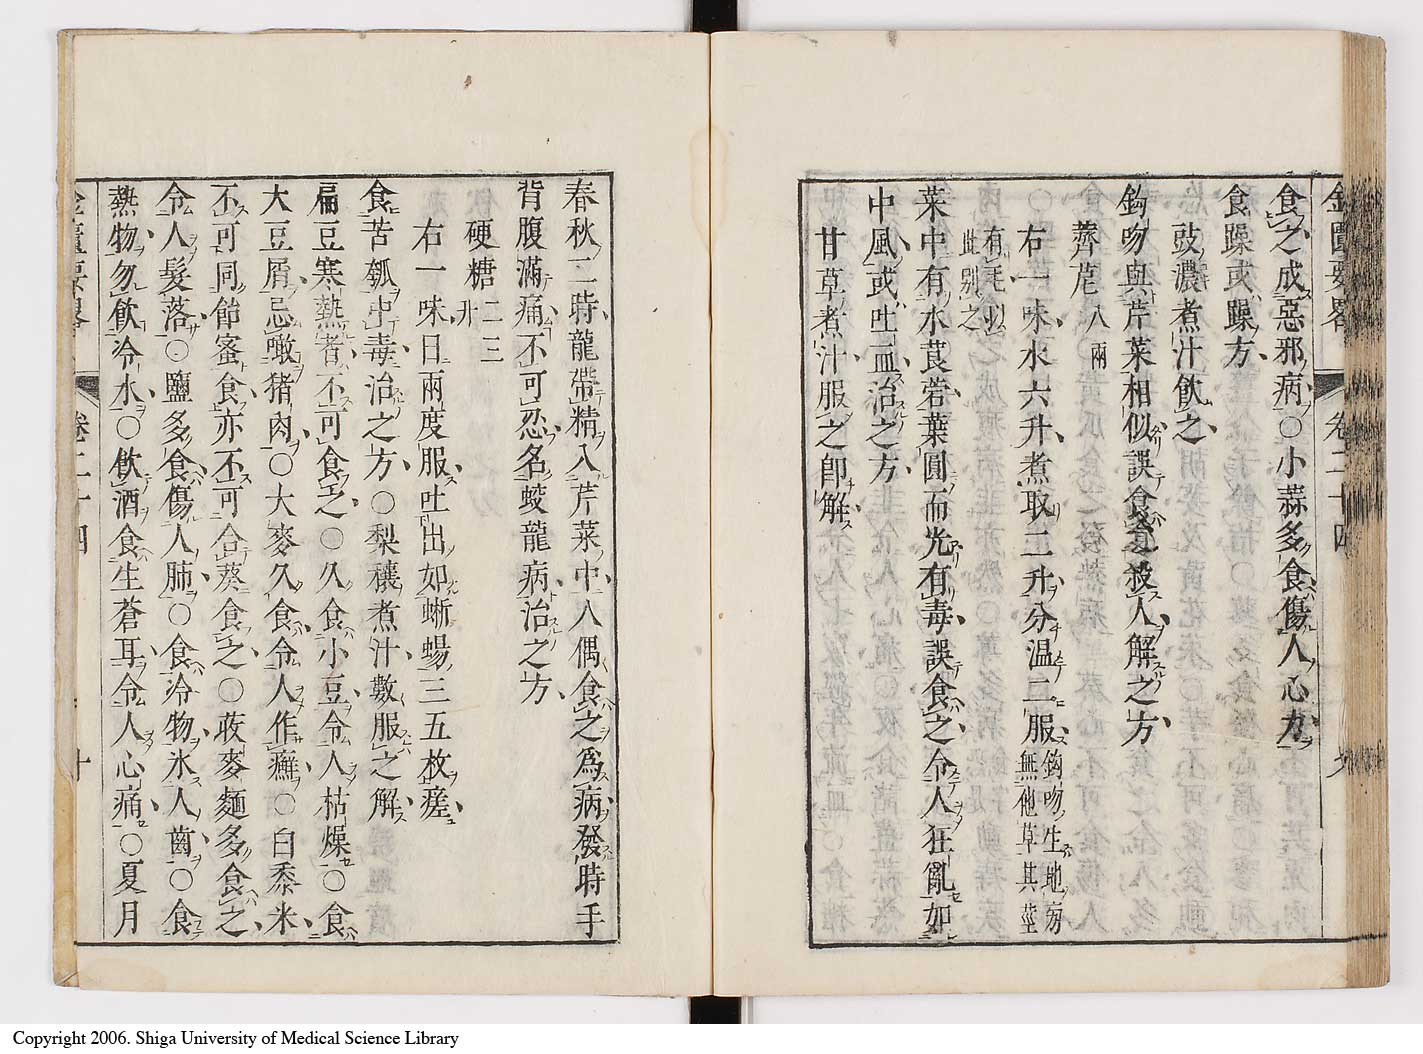 食之成惡邪病〇小蒜多食傷人心力
食躁或躁方
豉濃煮汁飲之
鈎吻與芹菜相似誤食之殺人解之方
薺苨 八兩
右一味水六升煮取二升分温二服 鈎吻生地傍無他草其莖
有毛以此別之
菜中有水莨菪葉圓而光有毒誤食之令人狂亂如
中風或吐血治之方
甘草煮汁服之即解
春秋二時龍帶精入芹菜中人偶食之爲病發時手
背腹滿痛不可忍名蛟龍病治之方
硬糖 二三升
右一味日兩度服吐出如蜥蜴三五枚瘥
食苦瓠中毒治之方〇梨穰煮汁數服之解
扁豆寒熱者不可食之〇久食小豆令人枯燥〇食
大豆屑忌噉猪肉〇大麥久食令人作癬〇白黍米
不可同飴蜜食亦不可合葵食之〇荍麥麵多食之
令人髮落〇鹽多食傷人肺〇食冷物氷人齒〇食
熱物勿飲冷水〇飲酒食生蒼耳令人心痛〇夏月
卷二十四
十
Copyright 2006. Shiga University of Medical Science Library